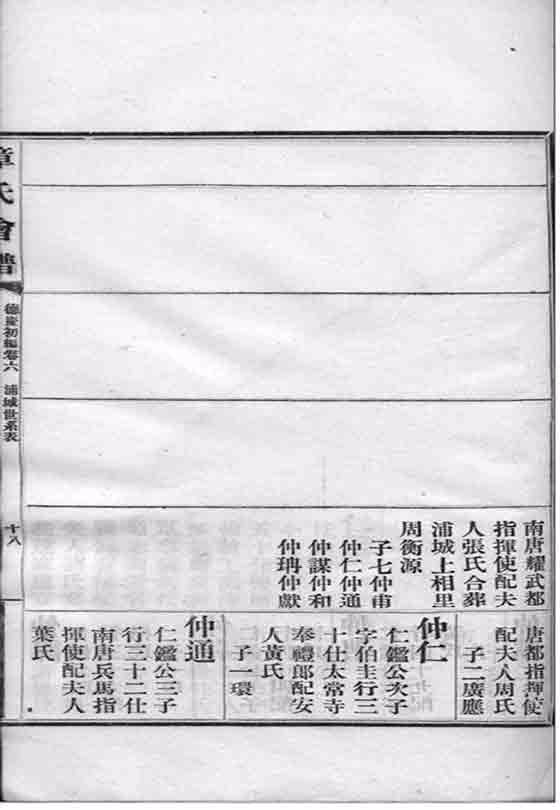 南唐耀武都
指揮使配夫
人張氏合葬
浦城上相里
周衡源
子七仲甫
仲仁仲通
仲謀仲和
仲珃仲獻
唐都指揮使
配夫人周氏
子二廣應
仲仁
仁鑑公次子
字伯圭行三
十仕太常寺
奉禮郎配安
人黃氏
子一環
仲通
仁鑑公三子
行三十二仕
南唐兵馬指
揮使配夫人
葉氏
章氏會譜
德慶初編卷六 浦城世系表
十八